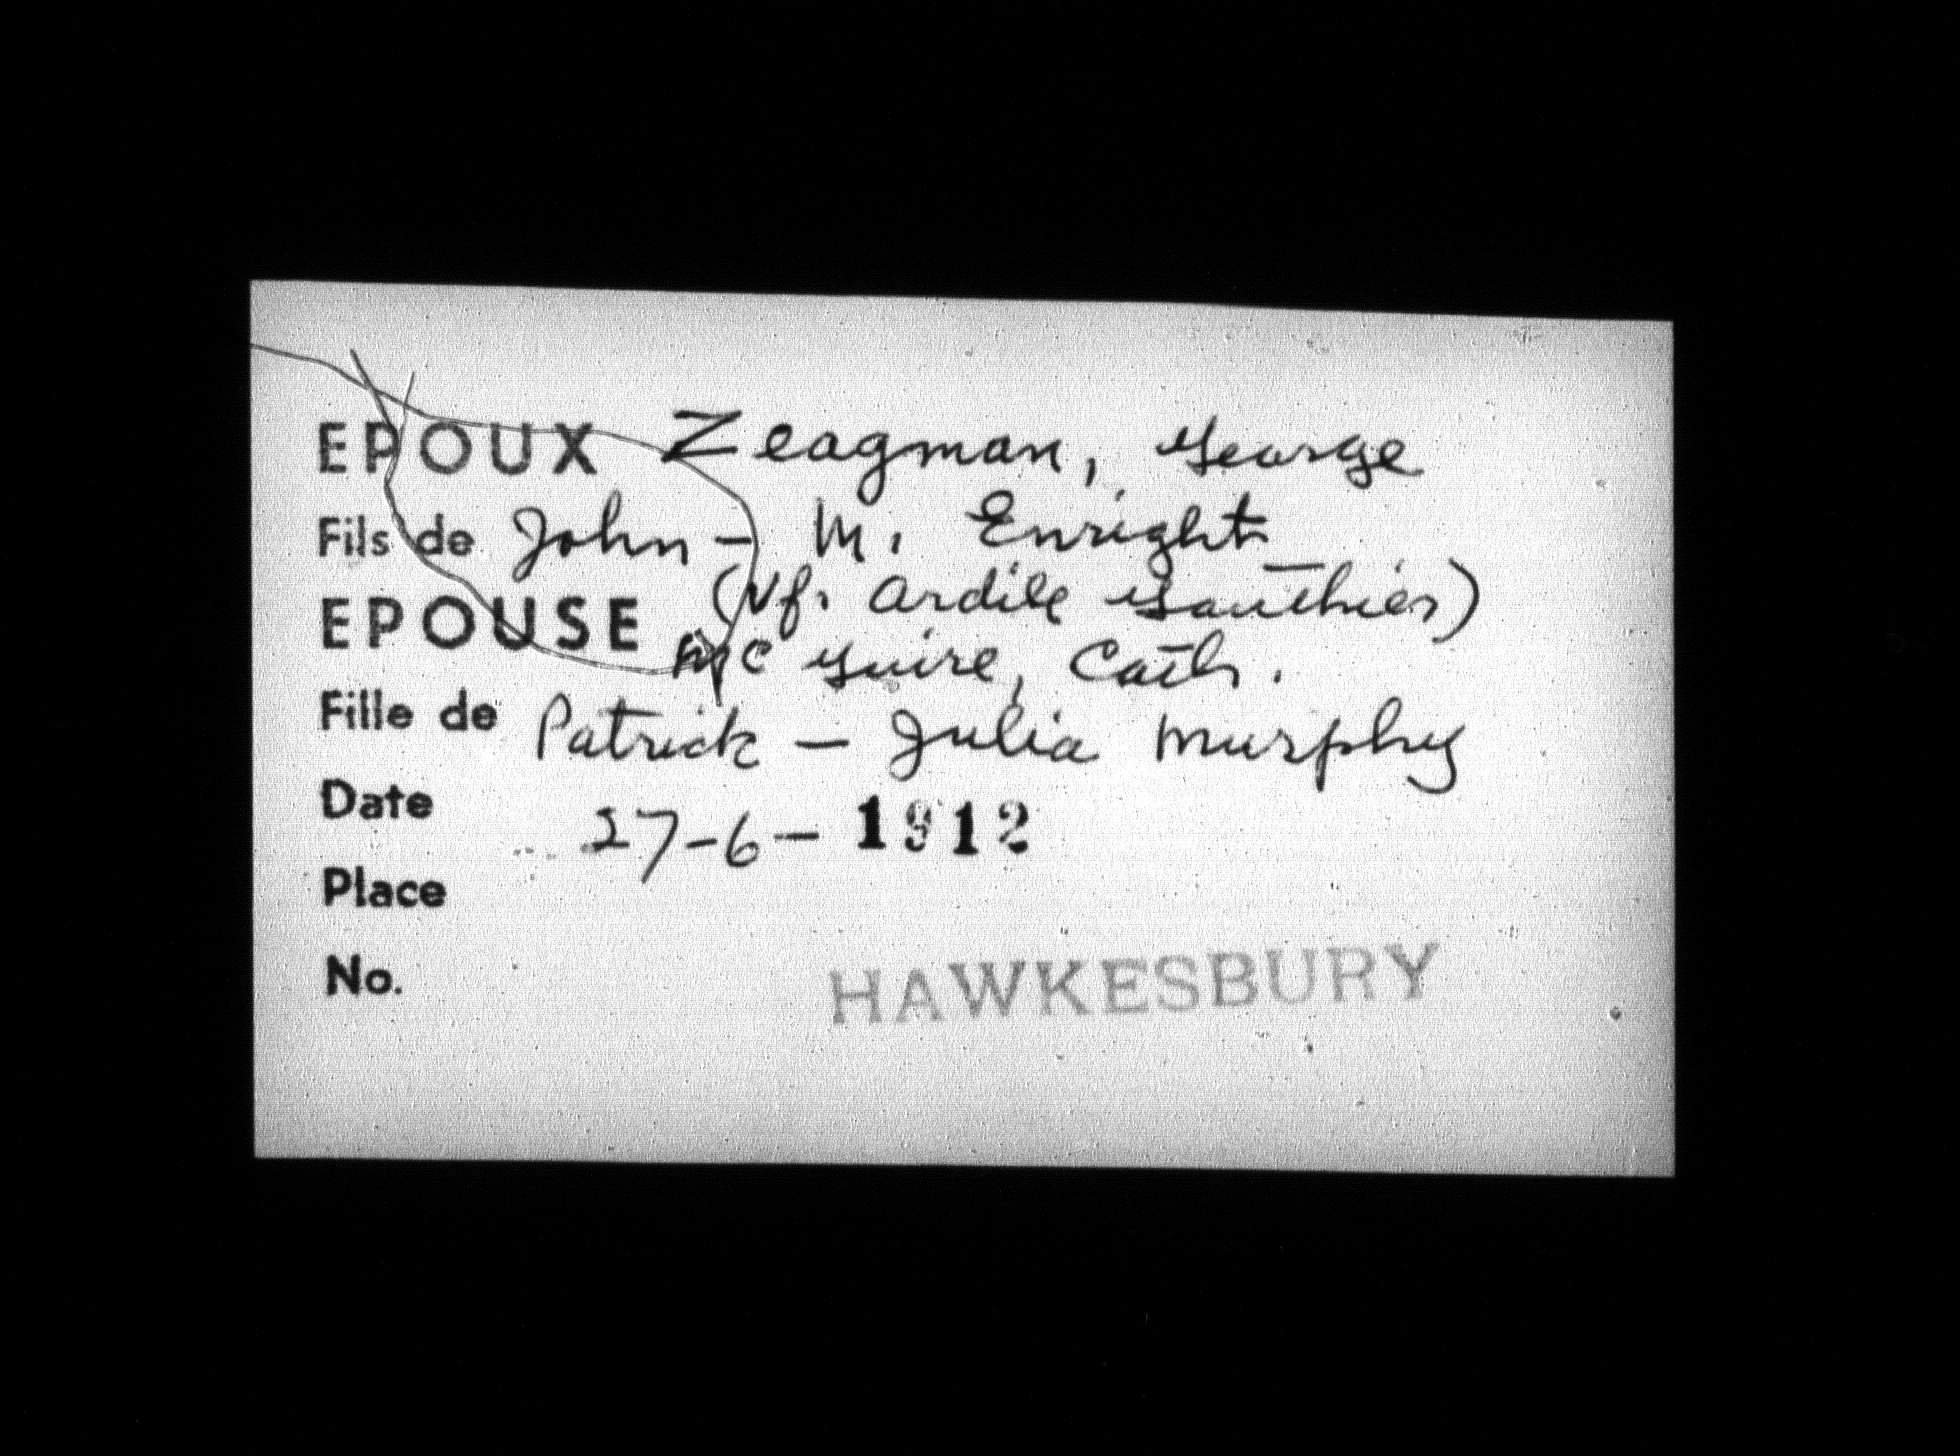 EPOUX Zeagman, George
Fils de John - M. Enright
(Vf. Ardile Gauthier)
EPOUSE McGuire, Cath.
Fille de Patrick - Julia Murphy
Date 27-6-1912
Place
No.
HAWKESBURY